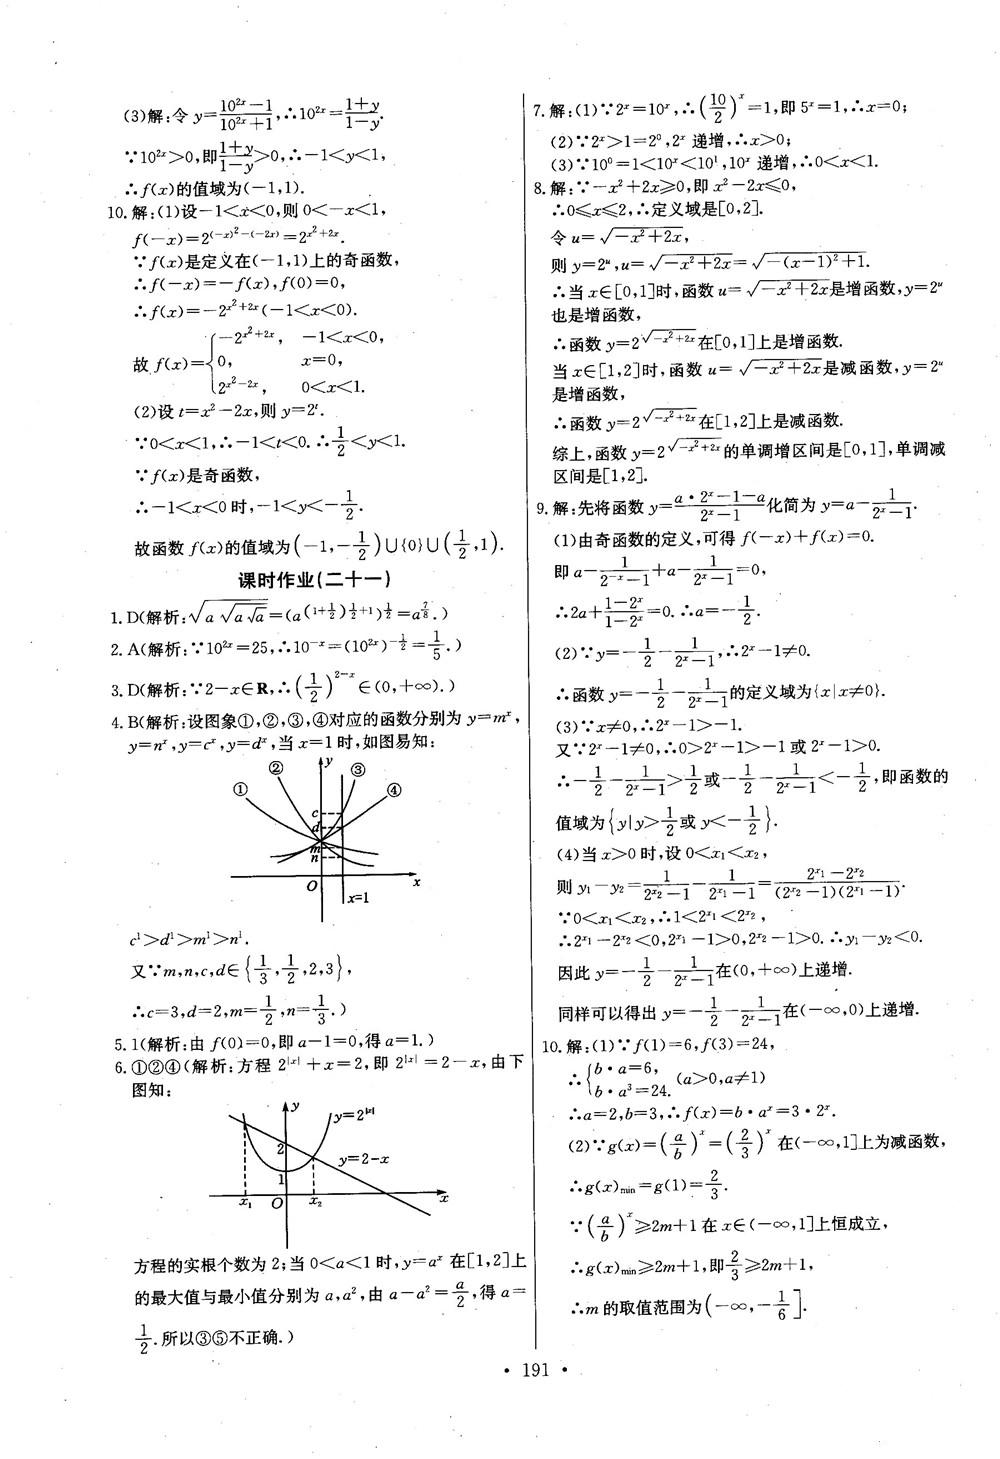 (3)解:令 y=(10^{2x}-1)/(10^{2x}+1),∴10^{2x}=(1+y)/(1-y).
∵10^{2x}>0,即(1+y)/(1-y)>0,∴-1<y<1,
∴f(x)的值域为(-1,1).
10.解:(1)设-1<x<0,则 0<-x<1,
f(-x)=2^{(-x)²-(-2x)}=2^{x²+2x}.
∵f(x)是定义在(-1,1)上的奇函数,
∴f(-x)=-f(x),f(0)=0,
∴f(x)=-2^{x²+2x}(-1<x<0).
故 f(x)={-2^{x²+2x}, -1<x<0,
0, x=0,
2^{x²-2x}, 0<x<1.
(2)设 t=x²-2x,则 y=2^t.
∵0<x<1,∴-1<t<0.∴1/2<y<1.
∵f(x)是奇函数,
∴-1<x<0 时,-1<y<-1/2.
故函数 f(x)的值域为(-1,-1/2)∪{0}∪(1/2,1).
课时作业(二十一)
1.D(解析:√(a√(a√a))=(a^{(1+1/2)1/2+1})^{1/2}=a^{7/8}.)
2.A(解析:∵10^{2x}=25,∴10^{-x}=(10^{2x})^{-1/2}=1/5.)
3.D(解析:∵2-x∈R,∴(1/2)^{2-x}∈(0,+∞).)
4.B(解析:设图象①,②,③,④对应的函数分别为 y=m^x,
y=n^x,y=c^x,y=d^x,当 x=1 时,如图易知:
y
② ③
① ④
c
d
m
n
O x
x=1
c¹>d¹>m¹>n¹.
又∵m,n,c,d∈{1/3,1/2,2,3},
∴c=3,d=2,m=1/2,n=1/3.)
5.1(解析:由 f(0)=0,即 a-1=0,得 a=1.)
6.①②④(解析:方程 2^{|x|}+x=2,即 2^{|x|}=2-x,由下
图知:
y y=2^{|x|}
2
y=2-x
1
x₁ O x₂ x
方程的实根个数为 2;当 0<a<1 时,y=a^x 在[1,2]上
的最大值与最小值分别为 a,a²,由 a-a²=a/2,得 a=
1/2.所以③⑤不正确.)
7.解:(1)∵2^x=10^x,∴(10/2)^x=1,即 5^x=1,∴x=0;
(2)∵2^x>1=2⁰,2^x 递增,∴x>0;
(3)∵10⁰=1<10^x<10¹,10^x 递增,∴0<x<1.
8.解:∵-x²+2x≥0,即 x²-2x≤0,
∴0≤x≤2,∴定义域是[0,2].
令 u=√(-x²+2x),
则 y=2^u,u=√(-x²+2x)=√(-(x-1)²+1).
∴当 x∈[0,1]时,函数 u=√(-x²+2x)是增函数,y=2^u
也是增函数,
∴函数 y=2^{√(-x²+2x)}在[0,1]上是增函数.
当 x∈[1,2]时,函数 u=√(-x²+2x)是减函数,y=2^u
是增函数,
∴函数 y=2^{√(-x²+2x)}在[1,2]上是减函数.
综上,函数 y=2^{√(-x²+2x)}的单调增区间是[0,1],单调减
区间是[1,2].
9.解:先将函数 y=(a·2^x-1-a)/(2^x-1)化简为 y=a-1/(2^x-1).
(1)由奇函数的定义,可得 f(-x)+f(x)=0.
即 a-1/(2^{-x}-1)+a-1/(2^x-1)=0,
∴2a+(1-2^x)/(1-2^x)=0.∴a=-1/2.
(2)∵y=-1/2-1/(2^x-1),∴2^x-1≠0.
∴函数 y=-1/2-1/(2^x-1)的定义域为{x|x≠0}.
(3)∵x≠0,∴2^x-1>-1.
又∵2^x-1≠0,∴0>2^x-1>-1 或 2^x-1>0.
∴-1/2-1/(2^x-1)>1/2或-1/2-1/(2^x-1)<-1/2,即函数的
值域为{y|y>1/2或 y<-1/2}.
(4)当 x>0 时,设 0<x₁<x₂,
则 y₁-y₂=1/(2^{x₂}-1)-1/(2^{x₁}-1)=(2^{x₁}-2^{x₂})/((2^{x₂}-1)(2^{x₁}-1)).
∵0<x₁<x₂,∴1<2^{x₁}<2^{x₂},
∴2^{x₁}-2^{x₂}<0,2^{x₁}-1>0,2^{x₂}-1>0.∴y₁-y₂<0.
因此 y=-1/2-1/(2^x-1)在(0,+∞)上递增.
同样可以得出 y=-1/2-1/(2^x-1)在(-∞,0)上递增.
10.解:(1)∵f(1)=6,f(3)=24,
∴{b·a=6,
b·a³=24. (a>0,a≠1)
∴a=2,b=3,∴f(x)=b·a^x=3·2^x.
(2)∵g(x)=(a/b)^x=(2/3)^x 在(-∞,1]上为减函数,
∴g(x)min=g(1)=2/3.
∵(a/b)^x≥2m+1 在 x∈(-∞,1]上恒成立,
∴g(x)min≥2m+1,即2/3≥2m+1,
∴m 的取值范围为(-∞,-1/6].
• 191 •